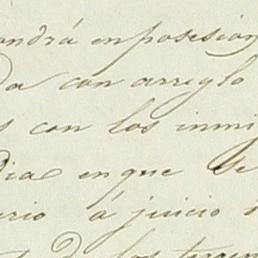 ondrá en posesion
da con arreglo
s con los inmi
Dia en que se
erio á juicio
D los